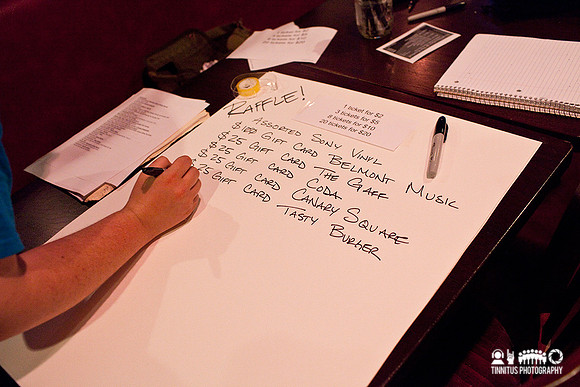 RAFFLE!
1 ticket for $2
3 tickets for $5
8 tickets for $10
20 tickets for $20
ASSORTED SONY VINYL
$100 GIFT CARD BELMONT MUSIC
$25 GIFT CARD THE GAFF
$25 GIFT CARD CODA
$25 GIFT CARD CANARY SQUARE
$25 GIFT CARD TASTY BURGER
TINNITUS PHOTOGRAPHY